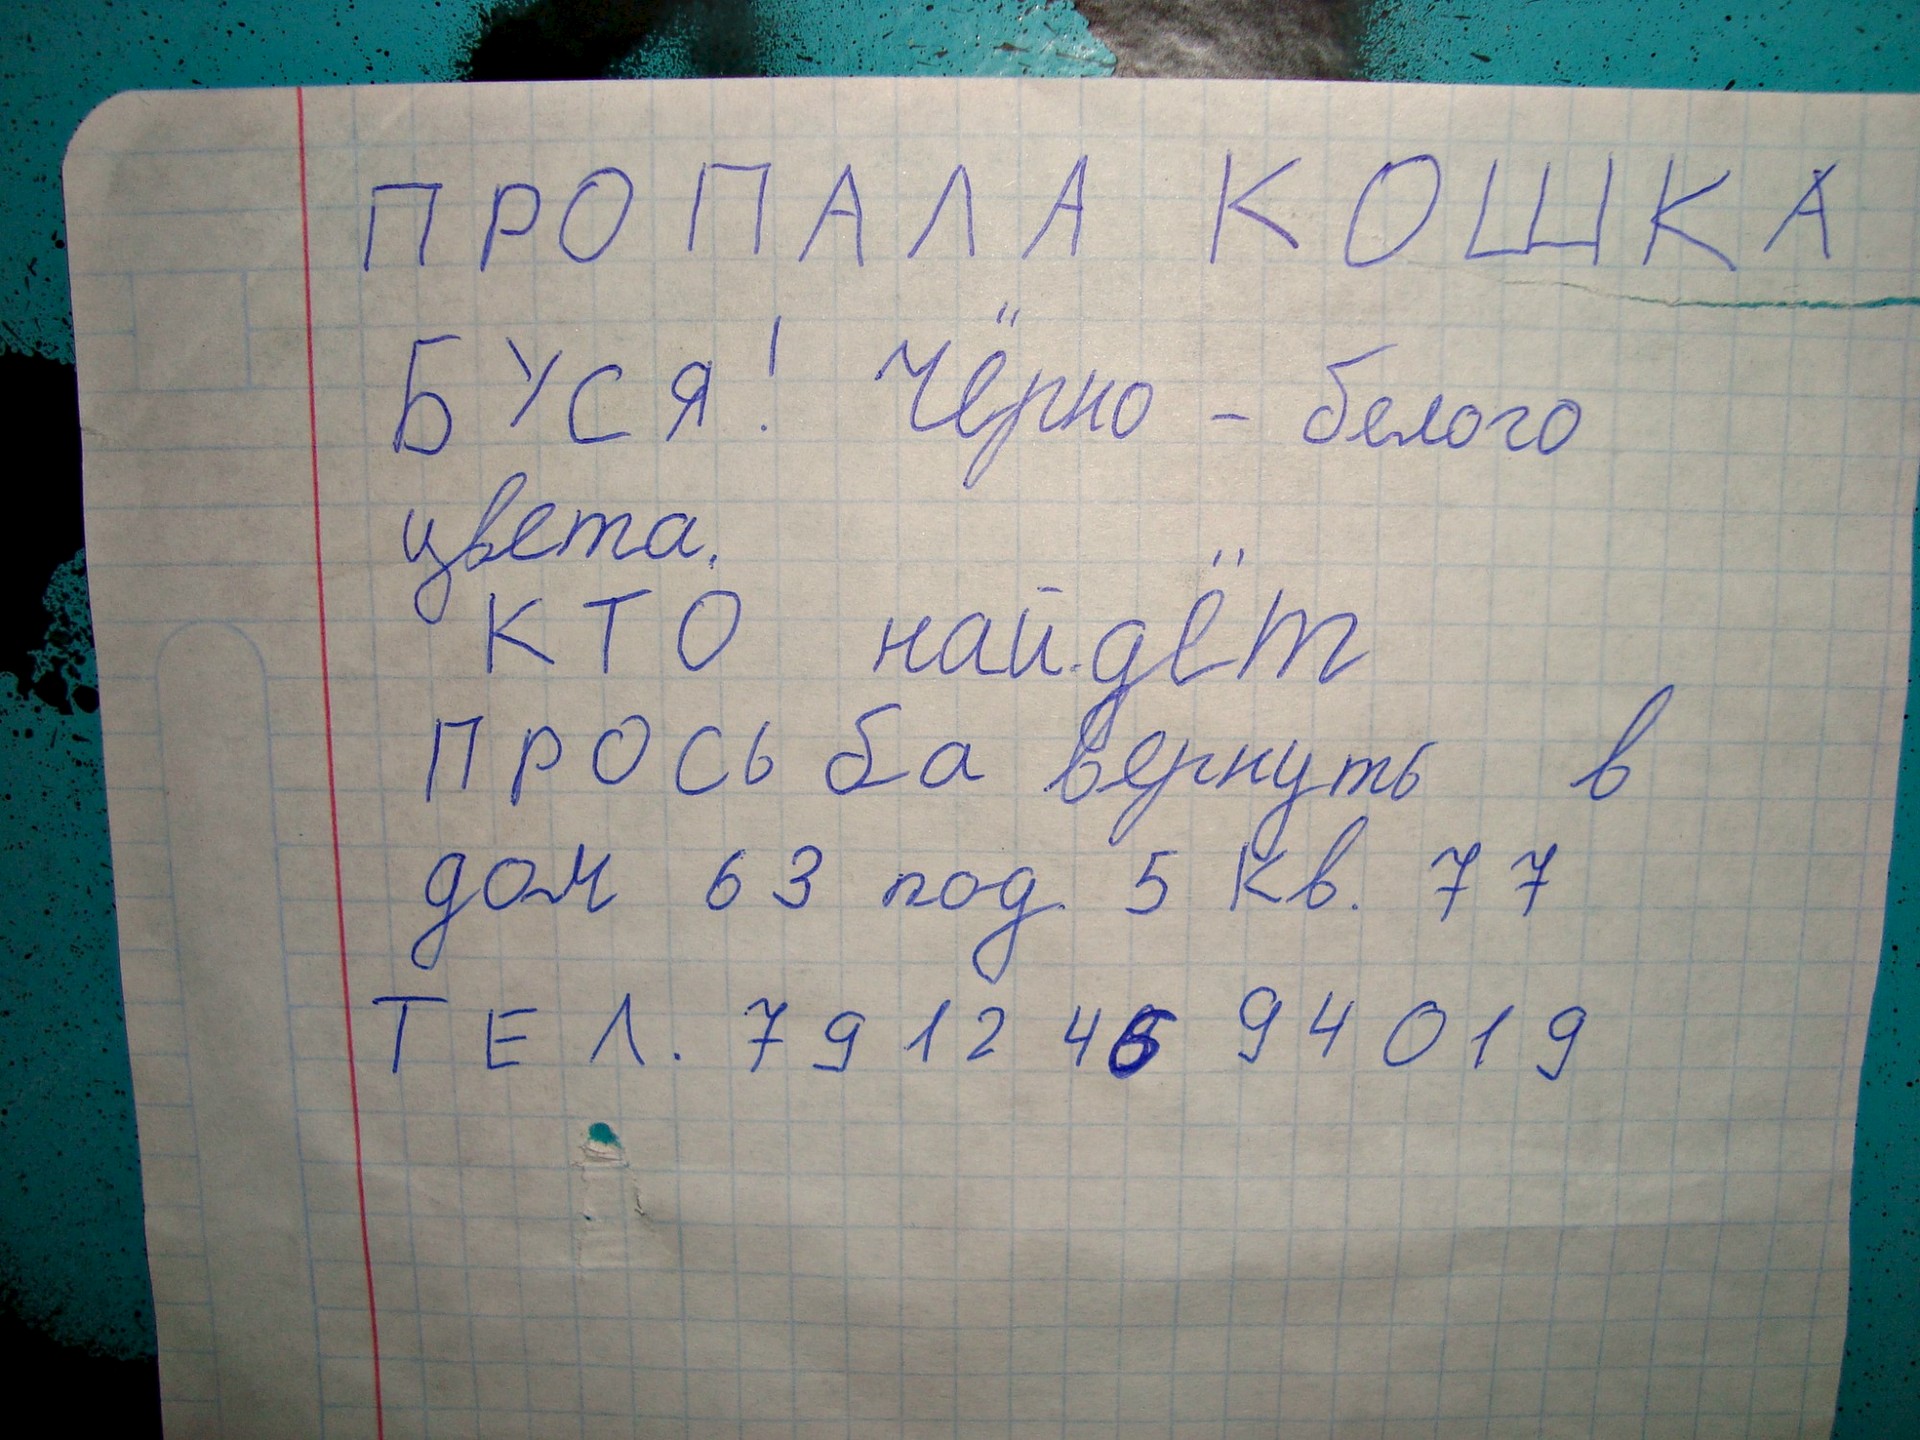 ПРОПАЛА КОШКА
БУСЯ! Чёрно - белого
цвета.
КТО найдёт
ПРОСЬба вернуть в
дом 63 под. 5 Кв. 77
ТЕЛ. 79124694019